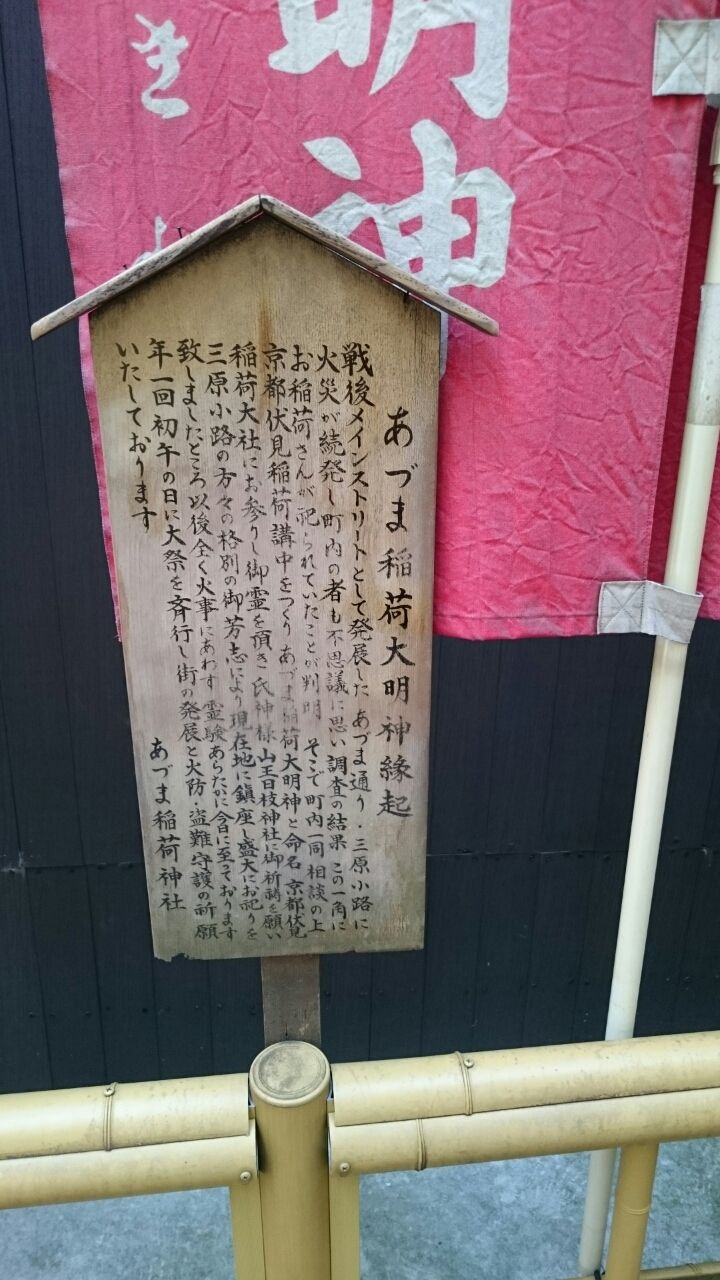 あづま稲荷大明神縁起
戦後メインストリートとして発展した あづま通り・三原小路に
火災が続発し町内の者も不思議に思い 調査の結果 この一角に
お稲荷さんが祀られていたことが判明 そこで町内一同相談の上
京都伏見稲荷講中をつくり あづま稲荷大明神と命名 京都伏見
稲荷大社にお参りし御霊を頂き 氏神様 山王日枝神社に御祈祷を願い
三原小路の方々の格別の御芳志により現在地に鎮座し盛大にお祀りを
致しましたところ以後全く火事にあわず 霊験あらたかに今日に至っております
年一回初午の日に大祭を斉行し街の発展と火防・盗難守護の祈願
いたしております
あづま稲荷神社
明神
き